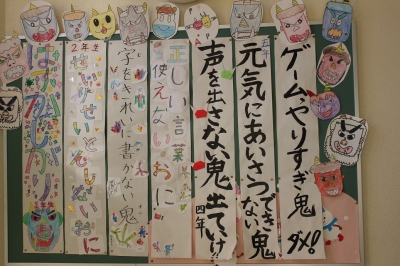 ゲームやりすぎ鬼
ダメ!
五年
元気にあいさつでき
ない鬼
声を出さない鬼出ていけ!!
四年
正しい言葉
使えないおに
字をきれいに書かない鬼
2年生
せいりせいとんしないおに
はずかしがりおに
1年生